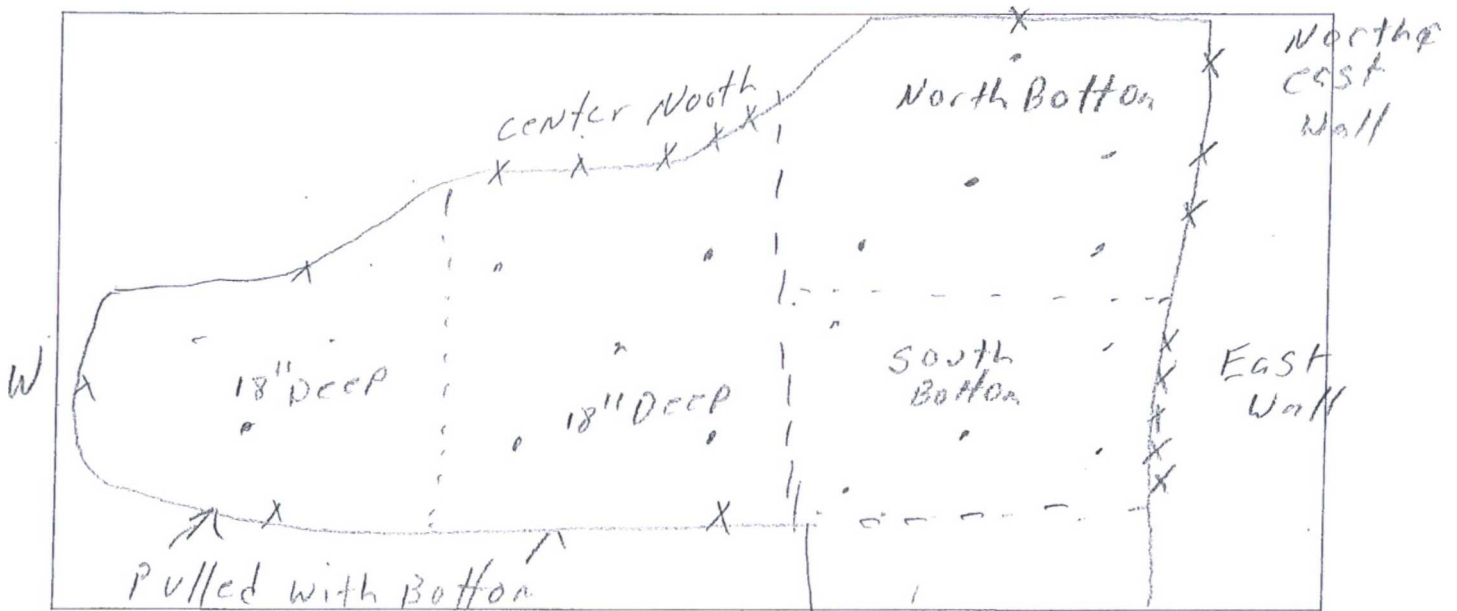 North &
east
Wall
center North
North Bottom
W
18" Deep
18" Deep
South
Bottom
East
Wall
Pulled with Bottom